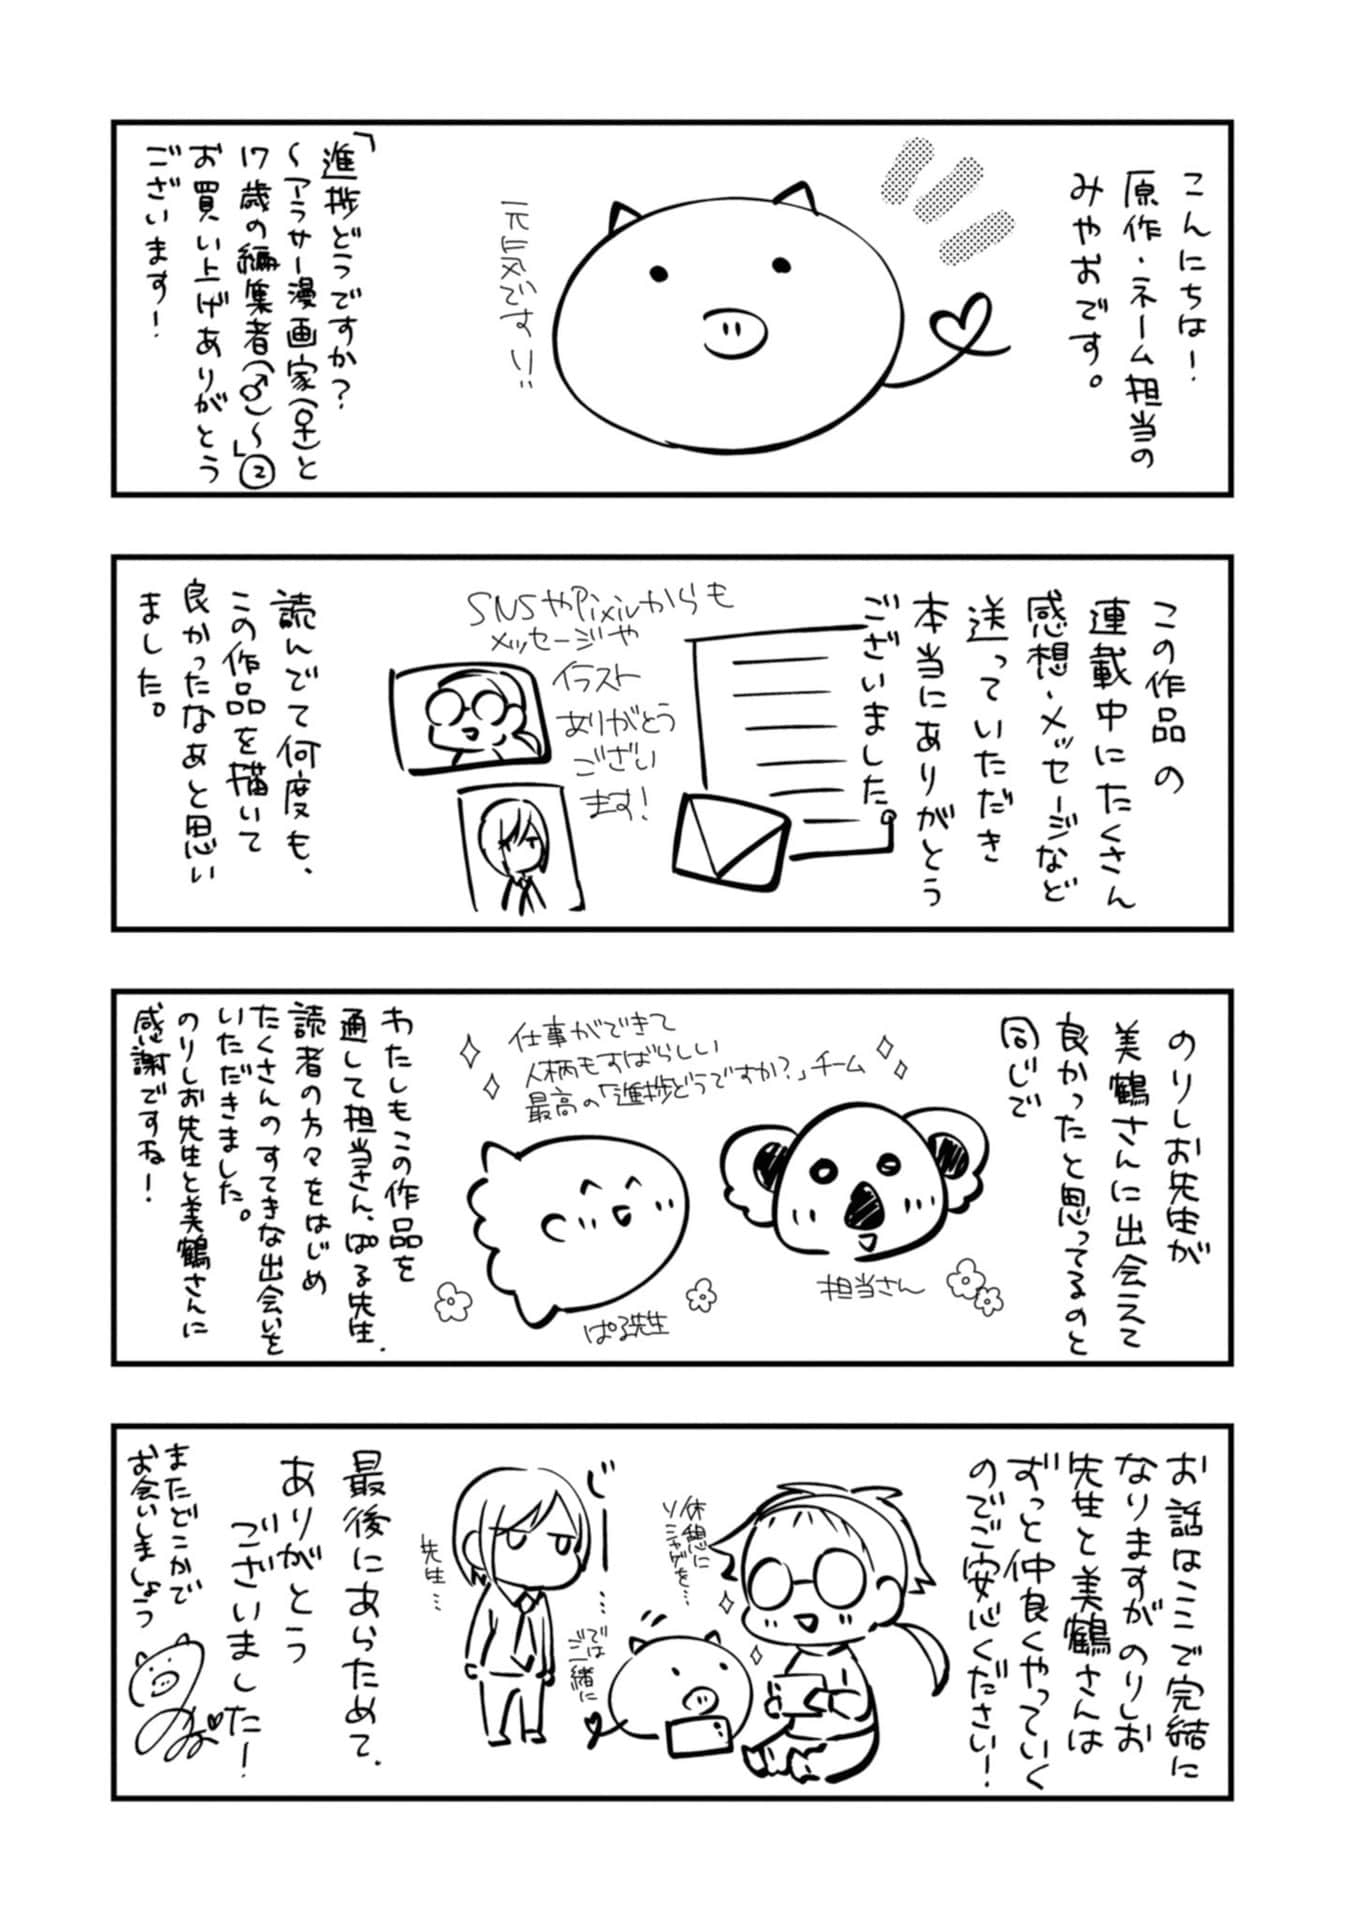 こんにちは！
原作・ネーム担当の
みやおです。
元気ですり！！
「進捗どうですか？
～アラサー漫画家(♀)と
17歳の編集者(♂)～」②
お買い上げありがとう
ございます！
この作品の
連載中にたくさん
感想・メッセージなど
送っていただき
本当にありがとう
ございました。
SNSやPixivからも
メッセージや
イラスト
ありがとう
ござい
ます！
読んで何度も、
この作品を描いて
良かったなあと思い
ました。
のりしお先生が
美鶴さんに出会えて
良かったと思ってるのと
同じで
仕事ができて
人柄もすばらしい
最高の「進捗どうですか？」チーム
担当さん
ぱる先生
わたしもこの作品を
通して担当さん、ぱる先生、
読者の方々をはじめ
たくさんのすてきな出会いを
いただきました。
のりしお先生と美鶴さんに
感謝ですね！
お話はここで完結に
なりますがのりしお
先生と美鶴さんは
ずっと仲良くやっていく
のでご安心ください！
休憩に
ソシャゲを…
では
ご一緒に
じーー…
先生…
最後にあらためて、
ありがとう
ございました！
またどこかで
お会いしましょう